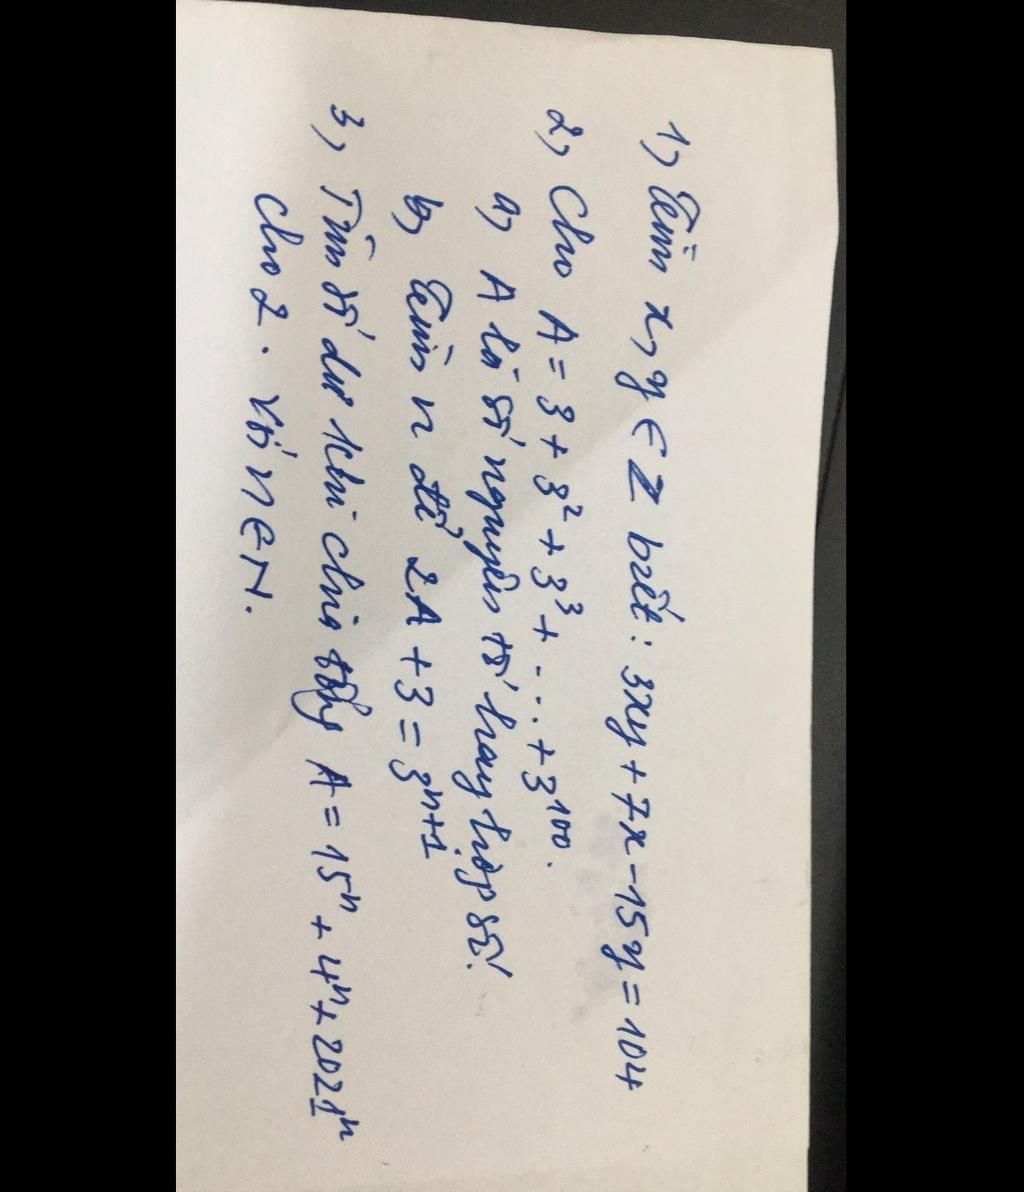 1, Tìm x, y ∈ Z biết: 3xy + 7x - 15y = 104
2, Cho A = 3 + 3² + 3³ + ... + 3¹⁰⁰.
a, A là số nguyên tố hay hợp số.
b, Tìm n để 2A + 3 = 3ⁿ⁺¹
3, Tìm số dư khi chia tổng A = 15ⁿ + 4ⁿ + 2021ⁿ
cho 2. Với n ∈ N.